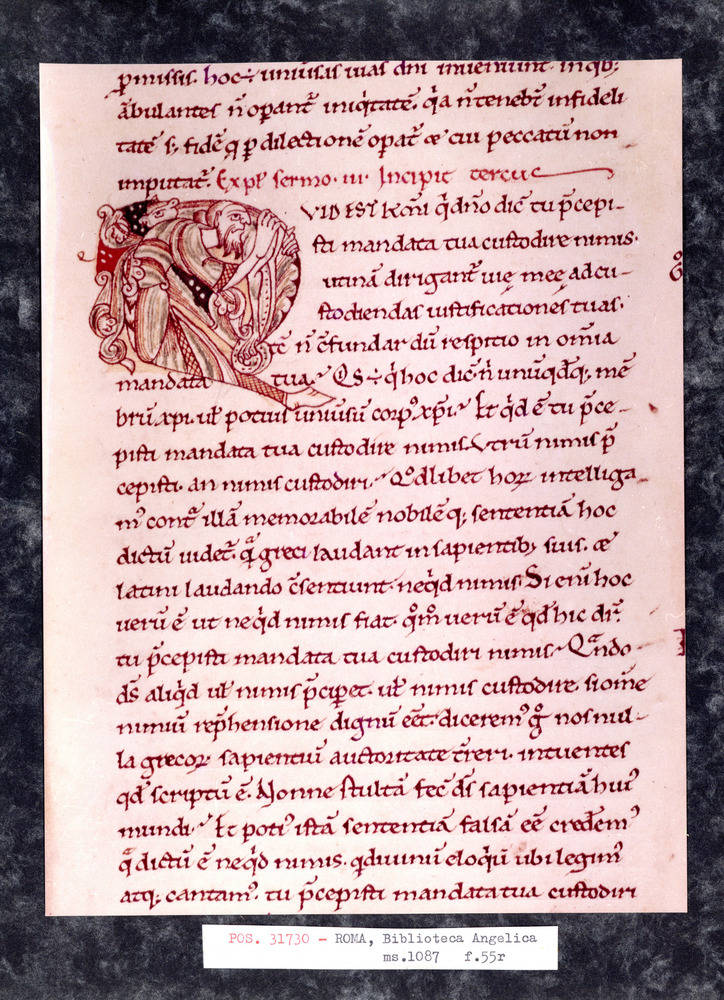 p̄missis. hoc ÷ uniuersas uias dn̄i inueniunt. in qib;
ābulantes n̄ operant̄ iniqitatē. qa n̄ tenebt̄ infideli
tate s; fidē q p dilectionē opat̄ æ cui peccatū non
imputat̄. Expl̄ sermo .iii. Incipit tercius
VID EST k̄mi qd dn̄o dic̄ tu p̄cepi-
sti mandata tua custodire nimis.
utinā dirigant̄ uię meę ad cu-
stodiendas iustificationes tuas.
tc̄ n̄ c̄fundar dū respicio in om̄ia
mandata tua. Qs ÷ qi hoc dic̄ n̄ unuqdq; mē
brū xpi. ul̄ potius uniuersū corp᾽ xpi. Et qd ē tu p̄ce-
pisti mandata tua custodire nimis. Vtrū nimis p̄
cepisti. an nimis custodiri. Qodlibet hoꝝ intelliga-
m᾽ cont̄ illā memorabilē nobilēq; sententiā hoc
dictū uidet̄. qā greci laudant in sapientib; suis. æ
latini laudando c̄sentiunt. neqd nimis. Si eni hoc
uerū ē ut neqd nimis fiat. qom̄ uerū ē qd hic dr̄.
tu p̄cepisti mandata tua custodiri nimis. Qando
ds̄ aliqd ul̄ nimis p̄ciperet. ul̄ nimis custodire. si om̄e
nimiū rep̄hensione dignū eēt. dicerem᾽ g̊ nos nul-
la grecoꝝ sapientiū auctoritate t̄reri. intuentes
qd scriptū ē. Nonne stultā fec̄ ds̄ sapientiā hui᾽
mundi. Et poti᾽ istā sententiā falsā eē credem᾽
qā dictū ē neqd nimis. qā diuinū eloqiū ubi legim᾽
atq; cantam᾽. tu p̄cepisti mandata tua custodiri
POS. 31730 - ROMA, Biblioteca Angelica
ms.1087 f.55r